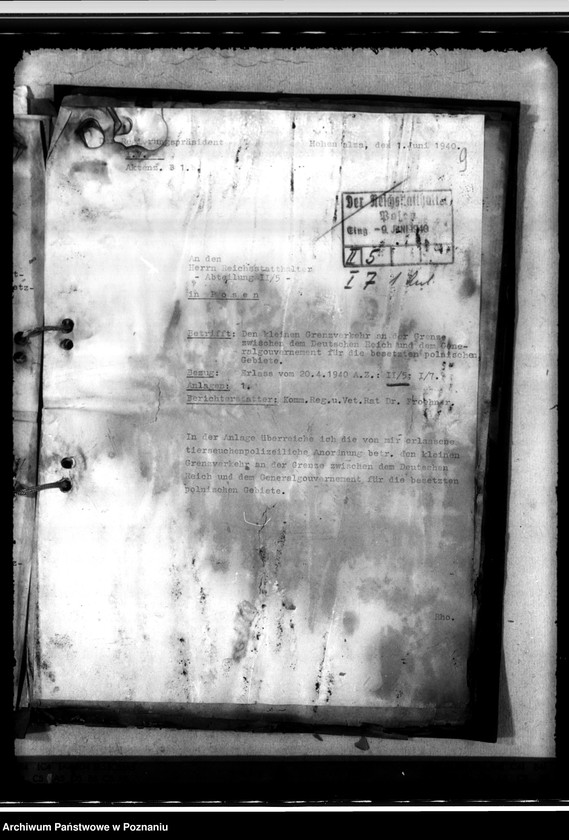 Hohensalza, den 1. Juni 1940.
9
Aktenz. B 1.
Der Reichsstatthalter
Posen
Eing. -9. JUNI 1940
II 5
I 7 1 Anl.
An den
Herrn Reichsstatthalter
- Abteilung II/5 -
in Posen
Betrifft: Den kleinen Grenzverkehr an der Grenze
zwischen dem Deutschen Reich und dem Gene-
ralgouvernement für die besetzten polnischen
Gebiete.
Bezug: Erlass vom 20.4.1940 A.Z.: II/5; I/7.
Anlagen: 1.
Berichterstatter: Komm.Reg.u.Vet.Rat Dr.
In der Anlage überreiche ich die von mir erlassene
tierseuchenpolizeiliche Anordnung betr. den kleinen
Grenzverkehr an der Grenze zwischen dem Deutschen
Reich und dem Generalgouvernement für die besetzten
polnischen Gebiete.
Archiwum Państwowe w Poznaniu